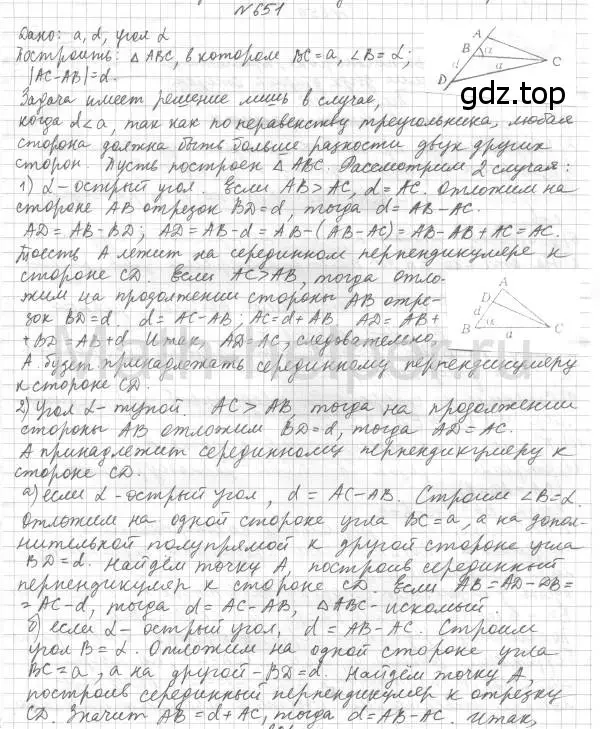 N651
Дано: a, d, угол α
Построить: △ABC, в котором BC=a, ∠B=α;
|AC-AB|=d.
Задача имеет решение лишь в случае,
когда d<a, так как по неравенству треугольника, любая
сторона должна быть больше разности двух других
сторон. Пусть построен △ABC. Рассмотрим 2 случая:
1) α-острый угол. Если AB>AC, d=AC. Отложим на
стороне AB отрезок BD=d, тогда d=AB-AC.
AD=AB-BD; AD=AB-d=AB-(AB-AC)=AB-AB+AC=AC.
Тоесть A лежит на серединном перпендикуляре к
стороне CD. Если AC>AB, тогда отло-
жим на продолжении стороны AB отре-
зок BD=d. d=AC-AB; AC=d+AB. AD=AB+
+BD=AB+d. Итак, AD=AC, следовательно,
A будет принадлежать серединному перпендикуляру
к стороне CD.
2) Угол α-тупой. AC>AB, тогда на продолжении
стороны AB отложим BD=d, тогда AD=AC.
A принадлежит серединному перпендикуляру к
стороне CD.
а) если α-острый угол, d=AC-AB. Строим ∠B=α.
Отложим на одной стороне угла BC=a, а на допол-
нительной полупрямой к другой стороне угла
BD=d. Найдём точку A, построив серединный
перпендикуляр к стороне CD. Если AB=AD-DB=
=AC-d, тогда d=AC-AB, △ABC-искомый.
б) если α-острый угол, d=AB-AC. Строим
угол B=α. Отложим на одной стороне угла
BC=a, а на другой-BD=d. Найдём точку A,
построив серединный перпендикуляр к отрезку
CD. Значит AB=d+AC, тогда d=AB-AC. Итак,
A
B
α
d
a
C
D
gdz.top
A
D
d
B
α
a
C
Math-helper.ru